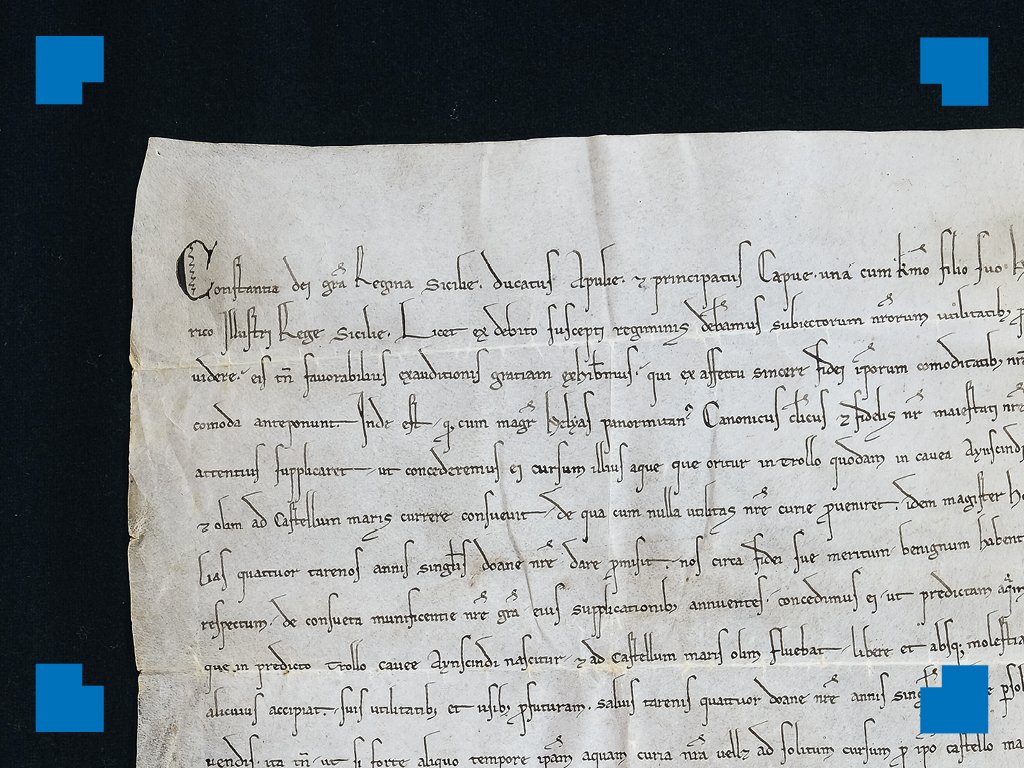 Constantia dei gr̃a Regina Sicilie. ducatus Apulie. ⁊ principatus Capue. una cum k̃mo filio suo
rico Illustri Rege Sicilie. Licet ex debito suscepti regiminis debeamus subiectorum nr̃orum utilitatib;
videre. eis tñ favorabilius exauditionis gratiam exhibemus. qui ex affectu sincere fidei ip̃orum comoditatib;
comoda anteponunt. Inde est q̢ cum magr̃ Helyas panormitan᾽ Canonicus cl̃icus ⁊ fidelis nr̃ maiestati nr̃e
attentius supplicaret ut concederemus ei cursum illius aque que oritur in trollo quodam in cavea Aynscindi
⁊ olim ad Castellum maris currere consuevit. de qua cum nulla utilitas nr̃e curie ꝓveniret. idem magister He
lias quattuor tarenos annis singl̃is doane nr̃e dare ꝓmisit. nos circa fidei sue meritum benignum habent
respectum. de consueta munificentie nr̃e gr̃a eius supplicationib; annuentes. concedimus ei ut predictam aq̃m
que in predicto Trollo cavee Aynscindi nascitur. ⁊ ad Castellum maris olim fluebat libere et absq; molestia
alicuius accipiat. suis utilitatib; et usib; ꝓfuturam. salvis tarenis quattuor doane nr̃e annis
vendis. ita tñ ut si forte aliquo tempore ip̃am aquam curia nr̃a vell; ad solitum cursum ꝑ ip̃o castello